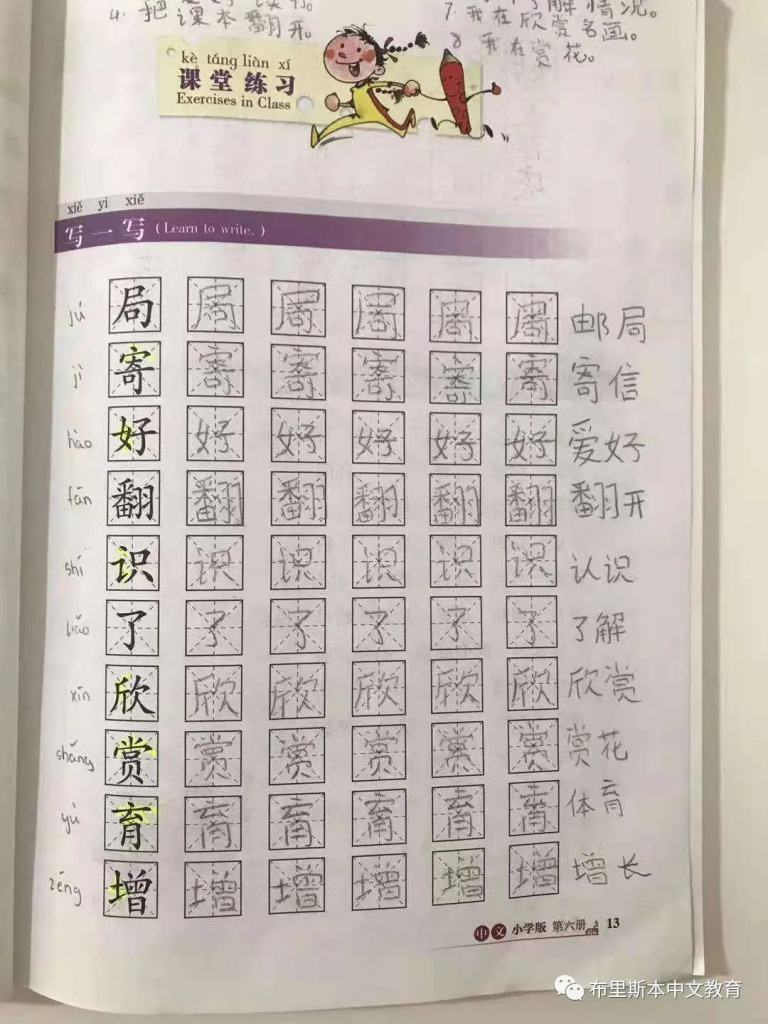 4. 把课本翻开。
了解情况。
7. 我在欣赏名画。
8 我在赏花。
kè táng liàn xí
课堂练习
Exercises in Class
xiě yi xiě
写一写 (Learn to write.)
jú 局 局 局 局 局 局 邮局
jì 寄 寄 寄 寄 寄 寄 寄信
hào 好 好 好 好 好 好 爱好
fān 翻 翻 翻 翻 翻 翻 翻开
shí 识 识 识 识 识 识 认识
liǎo 了 了 了 了 了 了 了解
xīn 欣 欣 欣 欣 欣 欣 欣赏
shǎng 赏 赏 赏 赏 赏 赏 赏花
yù 育 育 育 育 育 育 体育
zēng 增 增 增 增 增 增 增长
中文 小学版 第六册 13
布里斯本中文教育